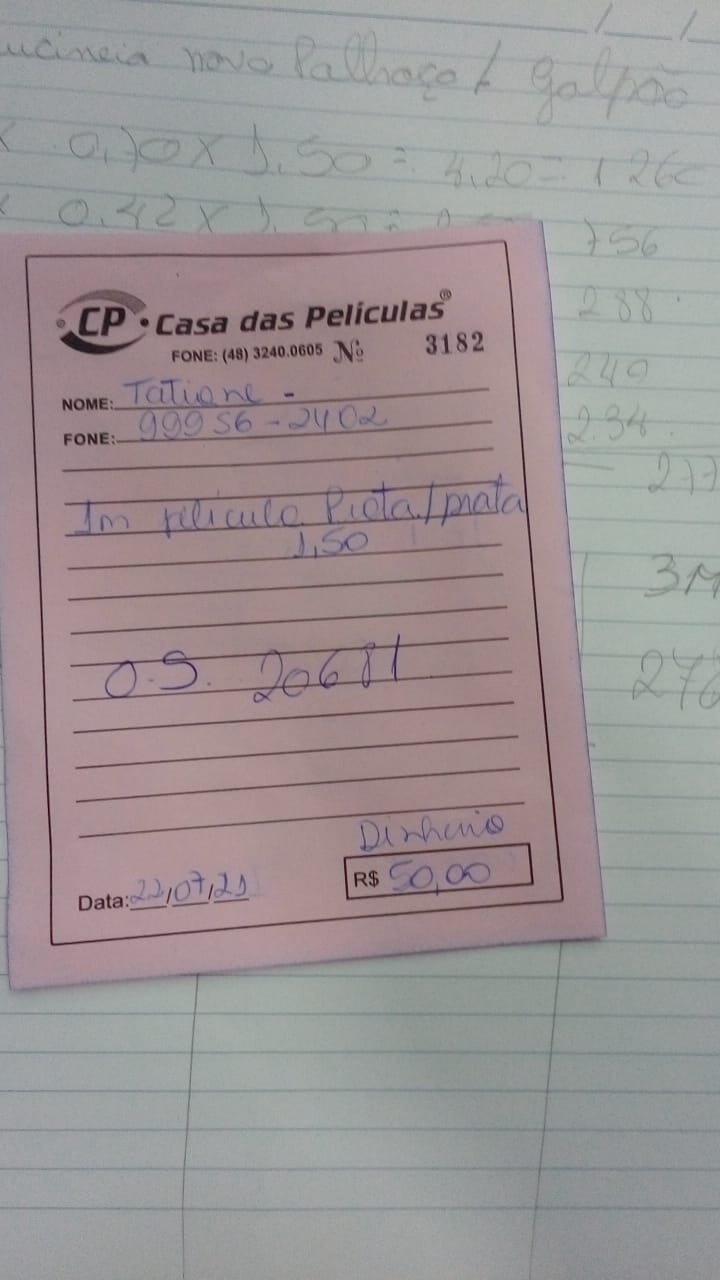 / /
novo Palhaço / galpão
0,70 x 1,50 = 4,20 = 1260
0.42 x 1,50 =
756
288
240
234
CP • Casa das Películas®
FONE: (48) 3240.0605 Nº 3182
NOME: Tatiane -
FONE: 99956-2402
1m película Preta/prata
1,50
O.S. 20681
Dinheiro
Data: 22/07/21 R$ 50,00